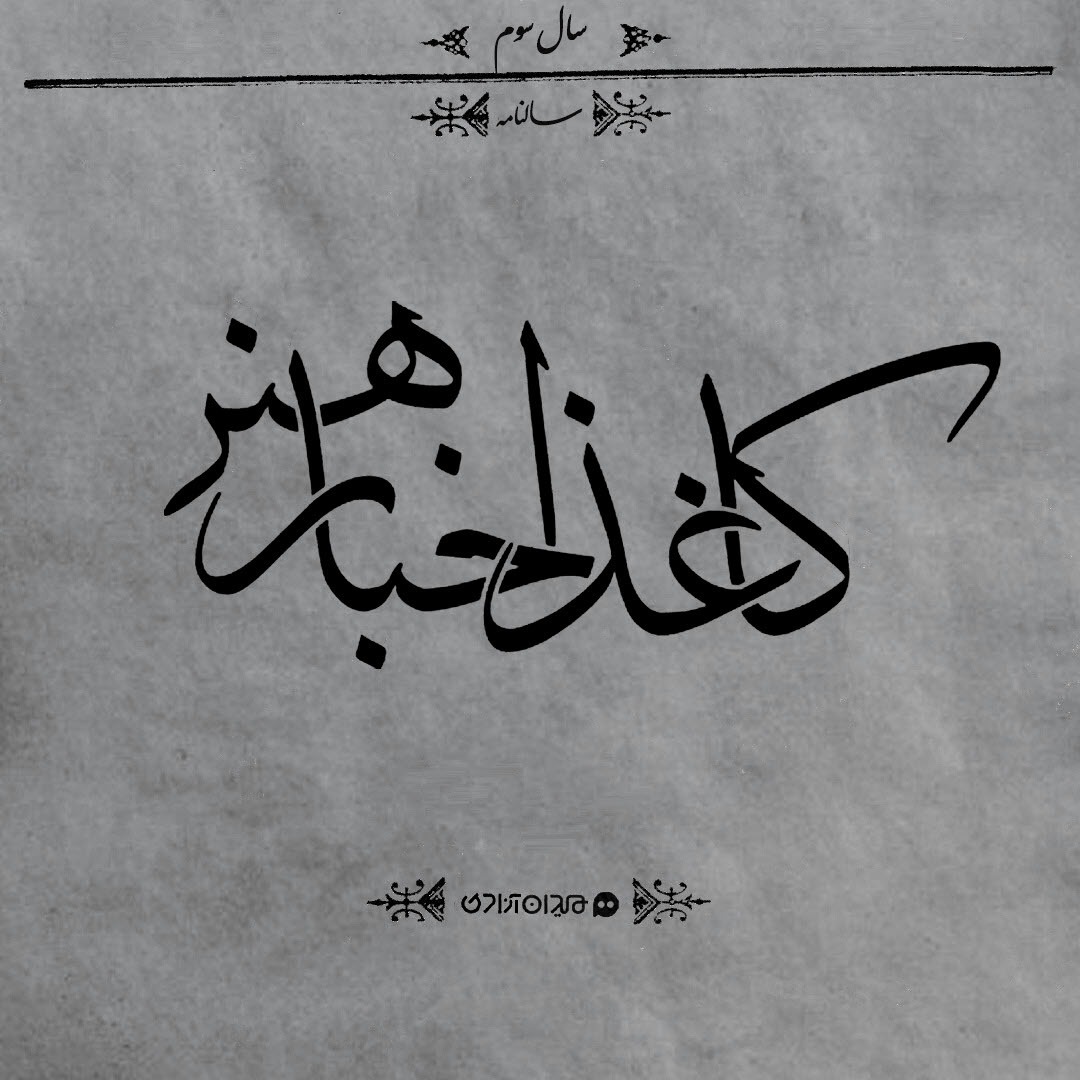 سال سوم
سالنامه
کاغذ اخبار هنر
میدان آزادی